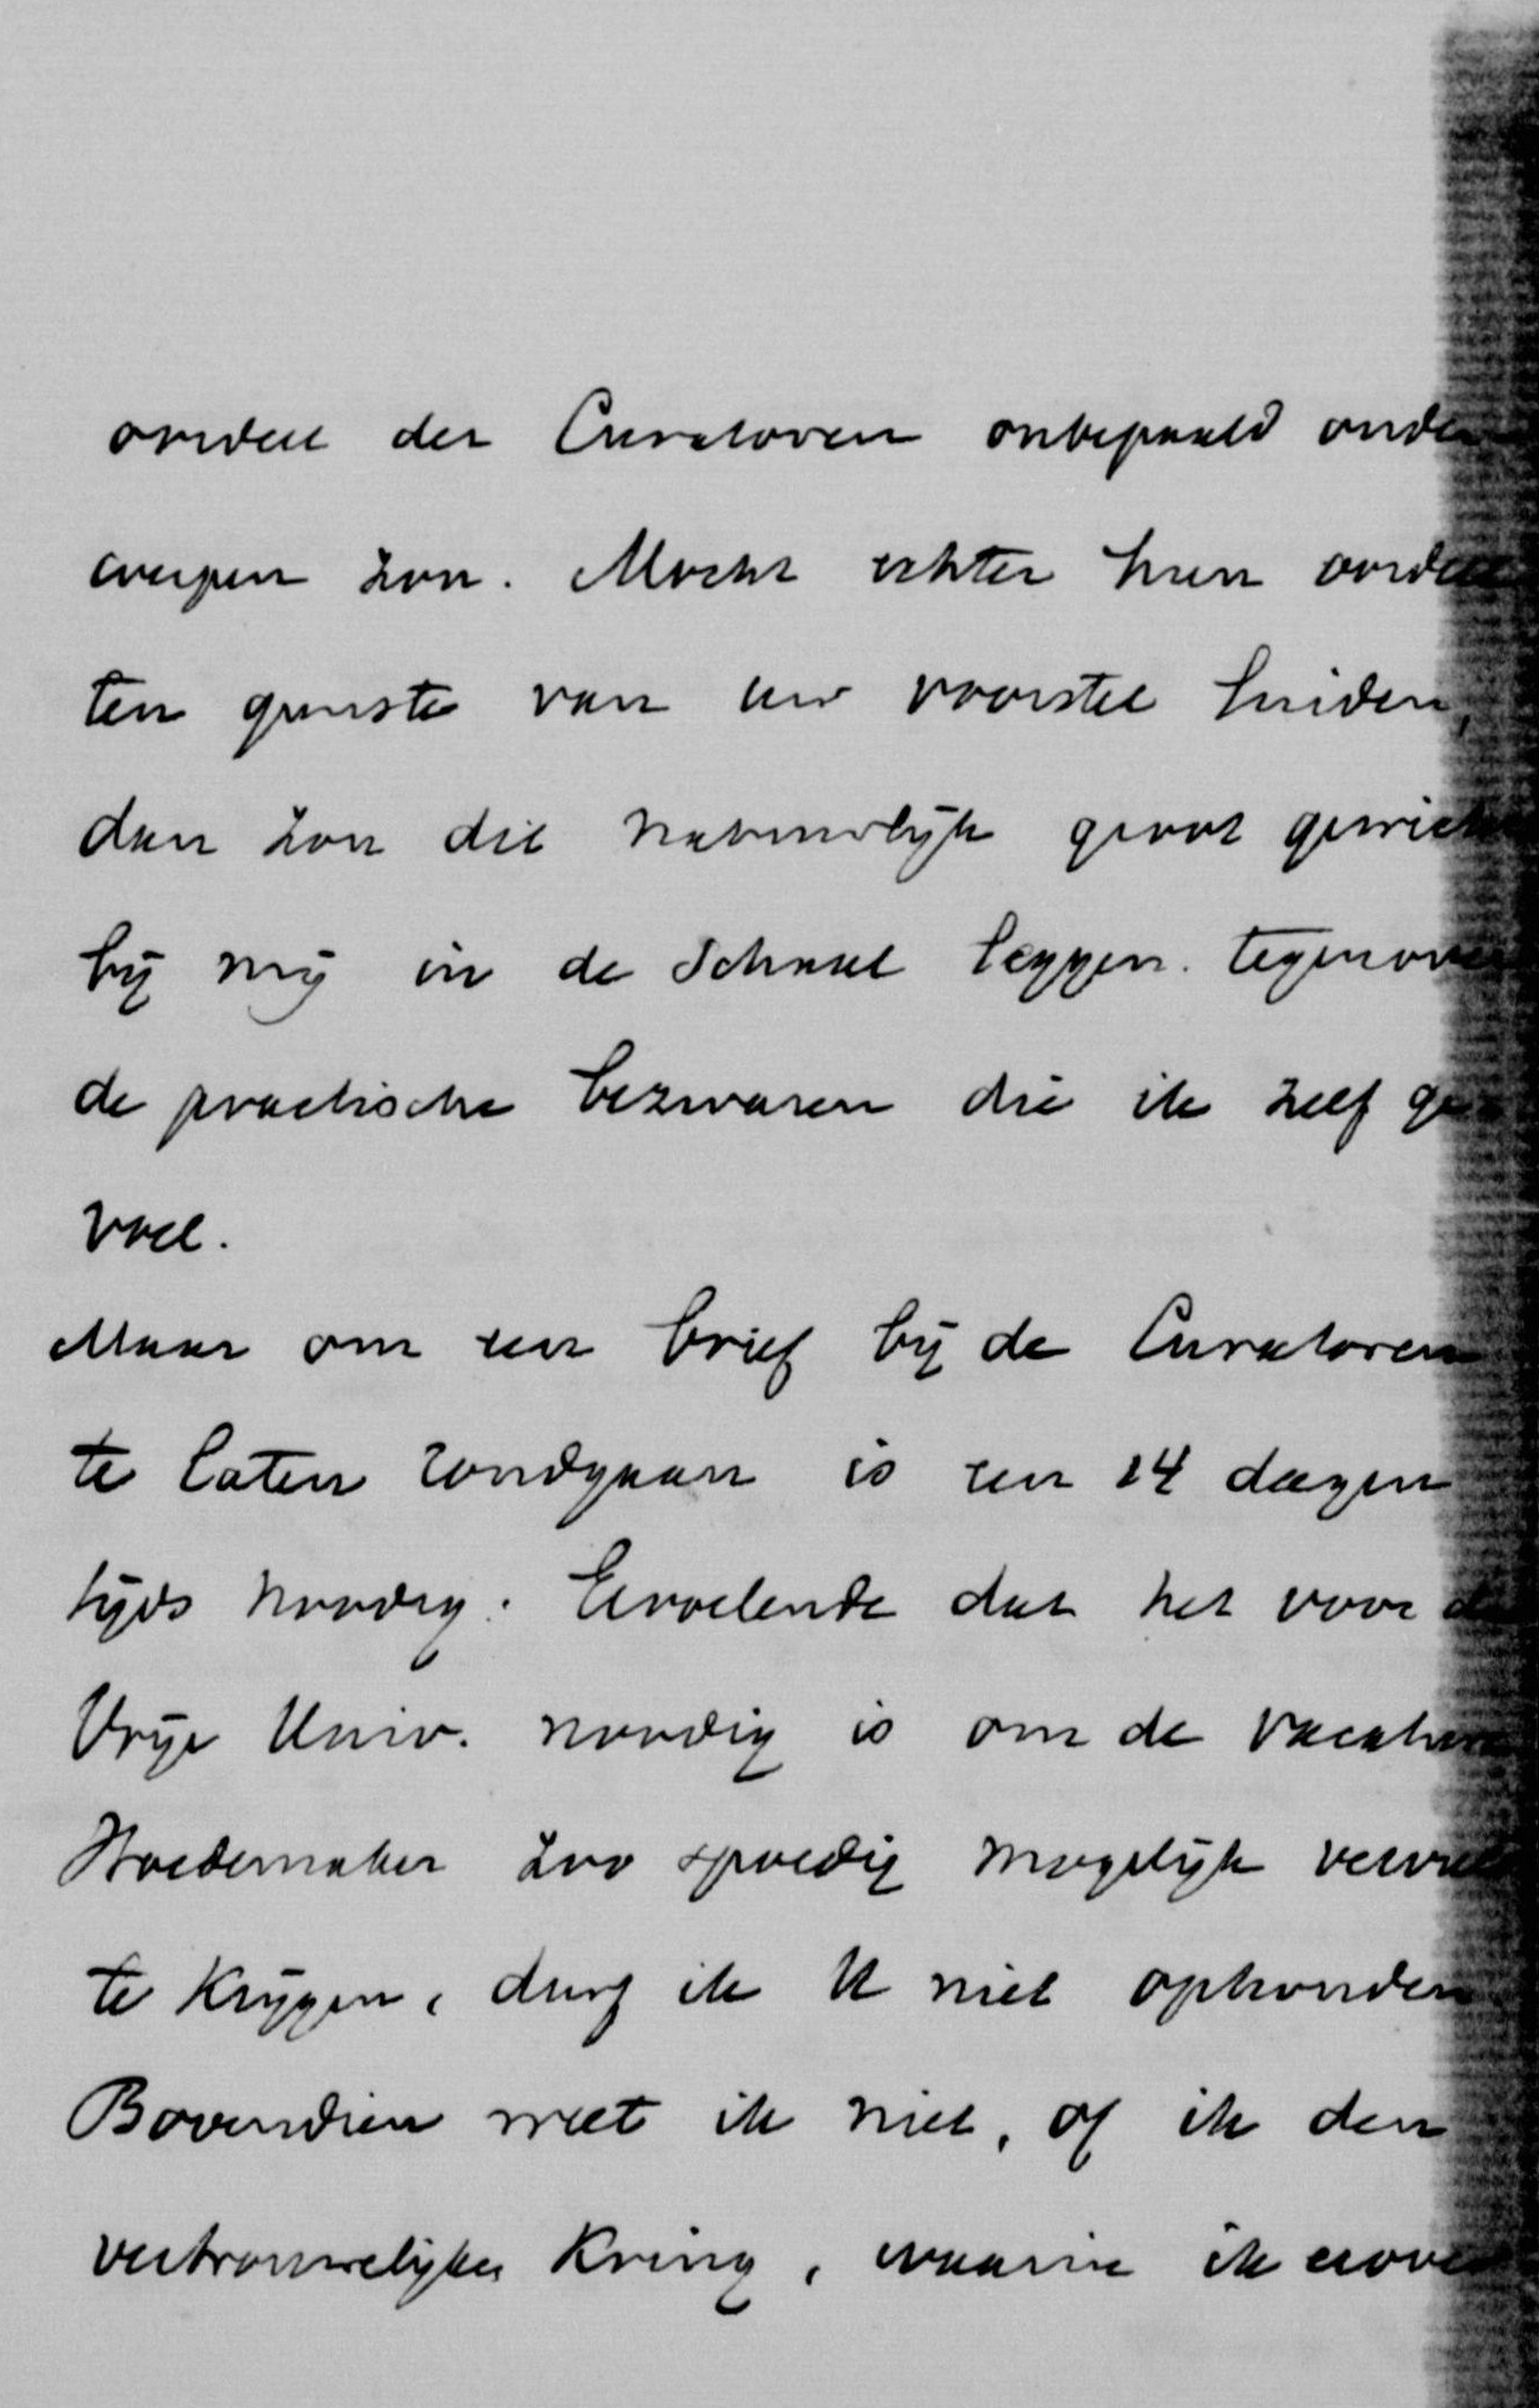 oordeel der Curatoren onbepaald onder
werpen zou. Mocht echter hun oordeel
ten gunste van uw voorstel luiden,
dan zou dit natuurlijk groot gewicht
bij mij in de schaal leggen tegenover
de practische bezwaren die ik zelf ge
voel.
Maar om een brief bij de Curatoren
te laten rondgaan is een 14 dagen
tijds noodig. Gevoelende dat het voor de
Vrije Univ. noodig is om de vacature
Hoedemaker zoo spoedig mogelijk vervuld
te krijgen, durf ik U niet ophouden.
Bovendien weet ik niet, of ik den
vertrouwelijken kring, waarin ik erover